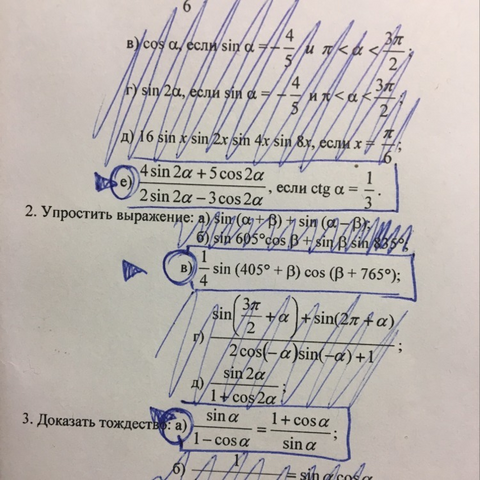 6
в) cos α, если sin α = −4/5 и π < α < 3π/2;
г) sin 2α, если sin α = −4/5 и π < α < 3π/2;
д) 16 sin x sin 2x sin 4x sin 8x, если x = π/6;
е) (4 sin 2α + 5 cos 2α)/(2 sin 2α − 3 cos 2α), если ctg α = 1/3.
2. Упростить выражение: а) sin (α + β) + sin (α − β);
б) sin 605° cos β + sin β sin 835°;
в) 1/4 sin (405° + β) cos (β + 765°);
г) (sin(3π/2 + α) + sin(2π + α))/(2cos(−α)sin(−α) + 1);
д) sin 2α/(1 + cos 2α);
3. Доказать тождество: а) sin α/(1 − cos α) = (1 + cos α)/sin α;
б) 1 = sin α cos α